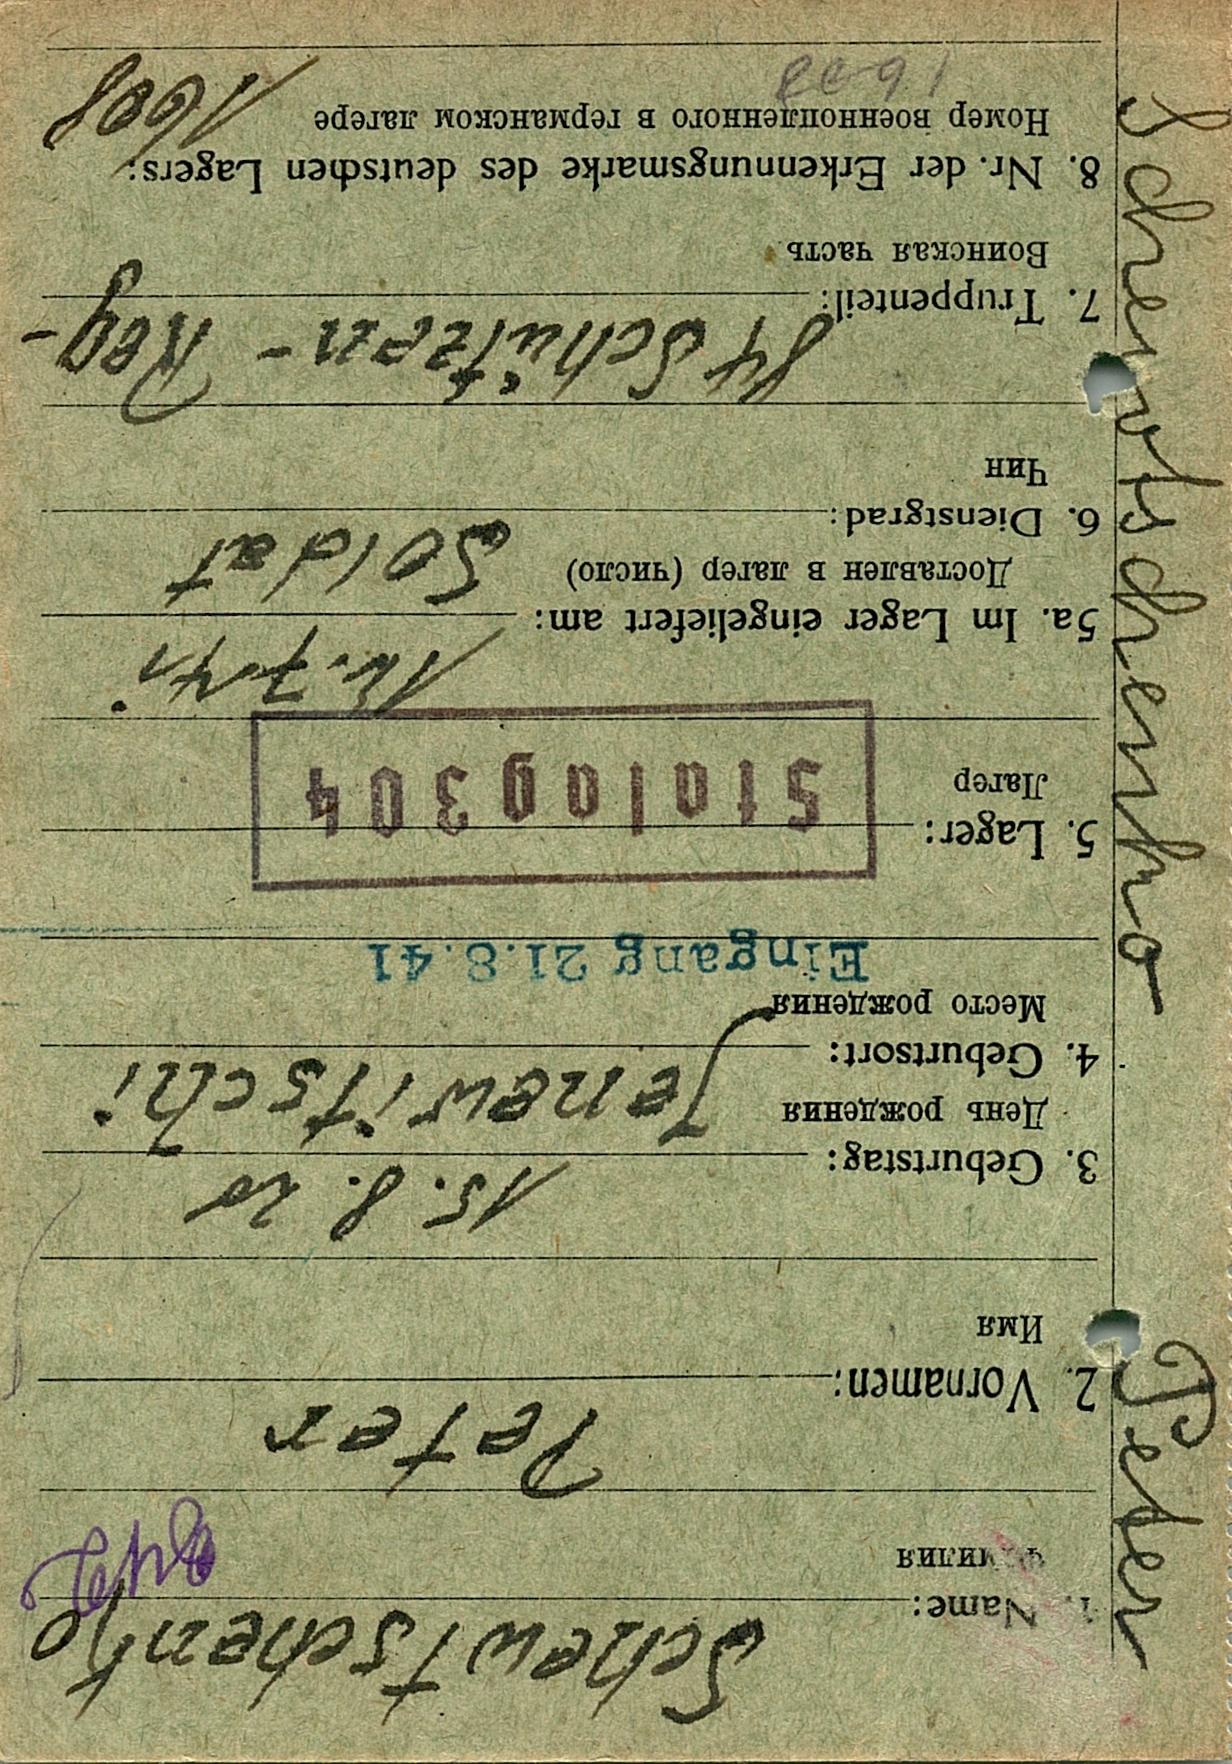 1. Name: Schewtschenko
Фамилия
2. Vornamen: Peter
Имя
3. Geburtstag: 15.8.20
День рождения
4. Geburtsort: Jenewitschi
Место рождения
Eingang 21.8.41
5. Lager: Stalag 304
Лагер
5a. Im Lager eingeliefert am: 12.7.41
Доставлен в лагер (число)
6. Dienstgrad: Soldat
Чин
7. Truppenteil: 84 Schützen-Reg-
Воинская часть
8. Nr. der Erkennungsmarke des deutschen Lagers: 1608
Номер военнопленного в германском лагере
Schewtschenko Peter